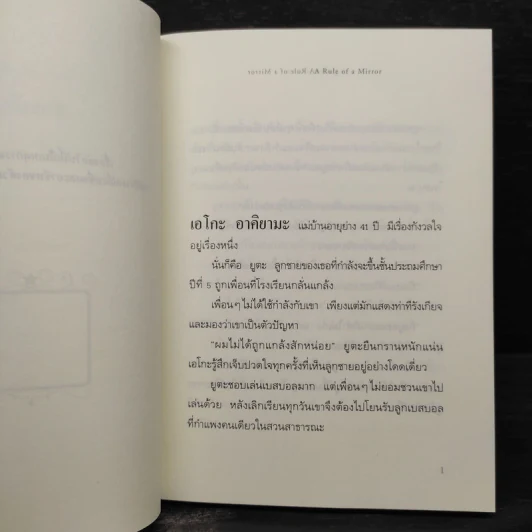 A Rule of a Mirror
เอโกะ อาคิยามะ แม่บ้านอายุย่าง 41 ปี มีเรื่องกังวลใจ
อยู่เรื่องหนึ่ง
นั่นก็คือ ยูตะ ลูกชายของเธอที่กำลังจะขึ้นชั้นประถมศึกษา
ปีที่ 5 ถูกเพื่อนที่โรงเรียนกลั่นแกล้ง
เพื่อนๆ ไม่ได้ใช้กำลังกับเขา เพียงแต่มักแสดงท่าทีรังเกียจ
และมองว่าเขาเป็นตัวปัญหา
"ผมไม่ได้ถูกแกล้งสักหน่อย" ยูตะยืนกรานหนักแน่น
เอโกะรู้สึกเจ็บปวดใจทุกครั้งที่เห็นลูกชายอยู่อย่างโดดเดี่ยว
ยูตะชอบเล่นเบสบอลมาก แต่เพื่อนๆ ไม่ยอมชวนเขาไป
เล่นด้วย หลังเลิกเรียนทุกวันเขาจึงต้องไปโยนรับลูกเบสบอล
ที่กำแพงคนเดียวในสวนสาธารณะ
1